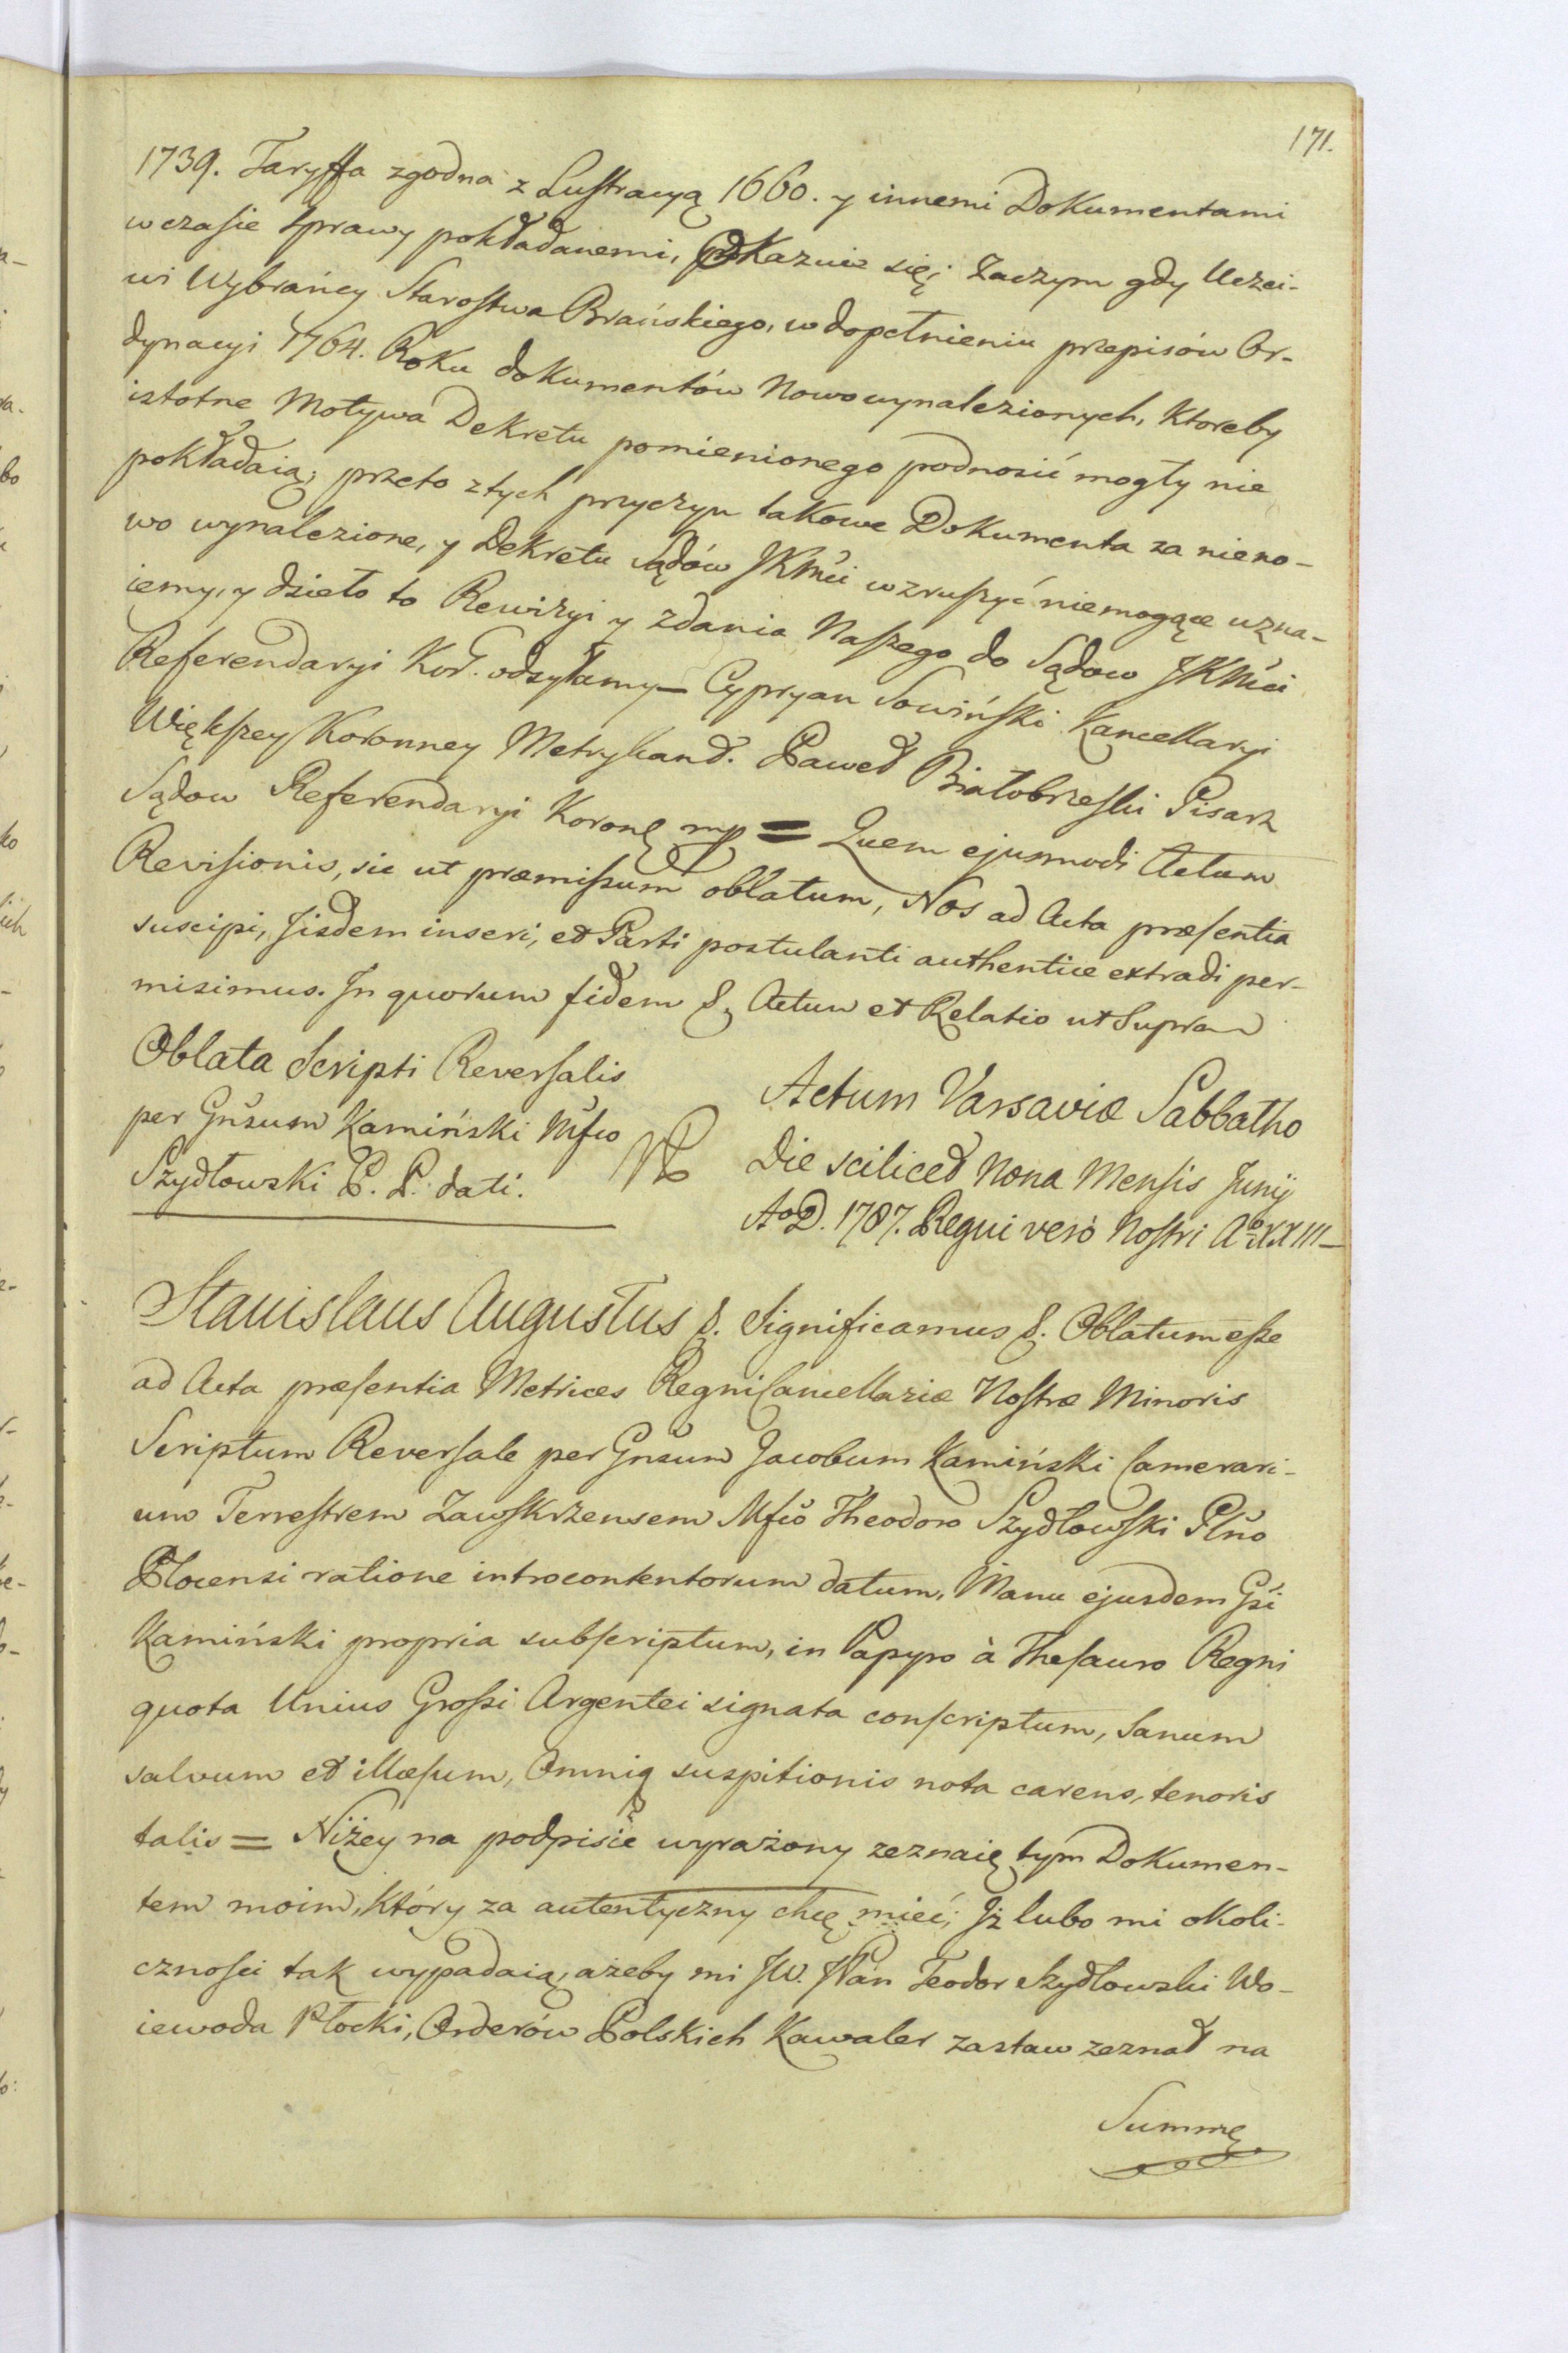 171.
1739. Taryffa zgodna z Lustracyą 1660. y innemi Dokumentami
w czasie sprawy pokładanemi, pokazuie się; Zaczym gdy Uczci-
wi Wybrańcy Starostwa Brańskiego, w dopełnieniu przepisów Or-
dynacyi 1764. Roku dokumentów Nowowynalezionych, ktoreby
istotne Motywa Dekretu pomienionego podnosić mogły nie
pokładaią; przeto z tych przyczyn takowe Dokumenta za nieno-
wo wynalezione, y Dekretu Sądów JKMci wzruszyć niemogące uzna-
iemy, y dzieło to Rewizyi y zdania Naszego do Sądow JKMci
Referendaryi Kor. odsyłamy — Cypryan Sowiński Kancellaryi
Większey Koronney Metrykant. Paweł Białobrzeski Pisarz
Sądow Referendaryi Koronę mp = Quem ejusmodi Actum
Revisionis, sic ut præmissum oblatum, Nos ad Acta præsentia
suscipi, Jisdem inseri, et Parti postulanti authentice extradi per-
misimus. In quorum fidem &. Actum et Relatio ut Supra
Oblata Scripti Reversalis
per Gnsum Kamiński Mfco
Szydłowski P. P. dati.
Actum Varsaviæ Sabbatho
Die scilicet Nona Mensis Junij
AoD. 1787. Regni verò Nostri Ao XXIII —
Stanislaus Augustus &. Significamus &. Oblatum esse
ad Acta præsentia Metrices Regni Cancellariæ Nostræ Minoris
Scriptum Reversale per Gnsum Jacobum Kamiński Camerari-
um Terrestrem Zawskrzensem Mfco Theodoro Szydłowski Plno
Plocensi ratione introcontentorum datum, Manu ejusdem Gsi
Kamiński propria subscriptum, in Papyro à Thesauro Regni
quota Unius Grossi Argentei signata conscriptum, Sanum
salvum et illæsum, Omniq suspitionis nota carens, tenoris
talis = Niżey na podpisie wyrażony zeznaię tym Dokumen-
tem moim, który za autentyczny chcę mieć; Iż lubo mi okoli-
cznosci tak wypadaią, ażeby mi JW. JPan Teodor Szydłowski Wo-
iewoda Płocki, Orderów Polskich Kawaler zastaw zeznał na
Summę